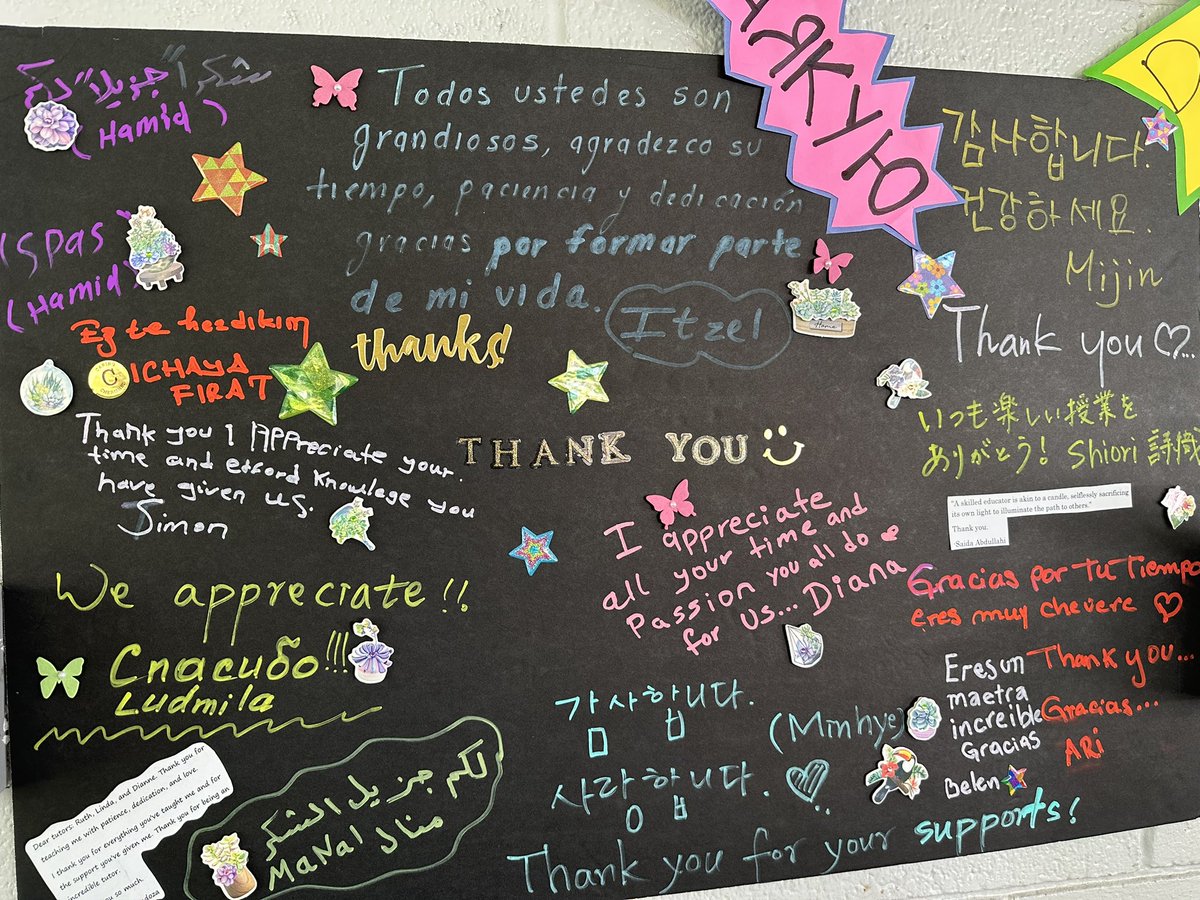 شكراً جزيلاً لكم
(Hamid)
Spas
(Hamid)
Ez te hezdikim
ICHAYA
FIRAT
Thank you I APPreciate your
time and efford Knowlege you
have given us.
Simon
Todos ustedes son
grandiosos, agradezco su
tiempo, paciencia y dedicación
gracias por formar parte
de mi vida.
Itzel
thanks!
THANK YOU
감사합니다.
건강하세요.
Mijin
Thank you ♡...
いつも楽しい授業を
ありがとう! Shiori 詩織
"A skilled educator is akin to a candle, selflessly sacrificing
its own light to illuminate the path to others."
Thank you.
-Saida Abdullahi
I appreciate
all your time and
Passion you all do
for us... Diana
Gracias por Tu Tiempo
eres muy chevere ♡
Thank you...
Gracias...
ARi
Eres un
maetra
increible
Gracias
Belen
We appreciate!!
Спасибо!!!
Ludmila
감사합니다.
(Minhye)
사랑합니다.
Thank you for your supports!
لكم جزيل الشكر
منال
MaNal
Dear tutors: Ruth, Linda, and Dianne. Thank you for
teaching me with patience, dedication, and love.
I thank you for everything you've taught me and for
the support you've given me. Thank you for being an
incredible tutor.
you so much.
Home
D